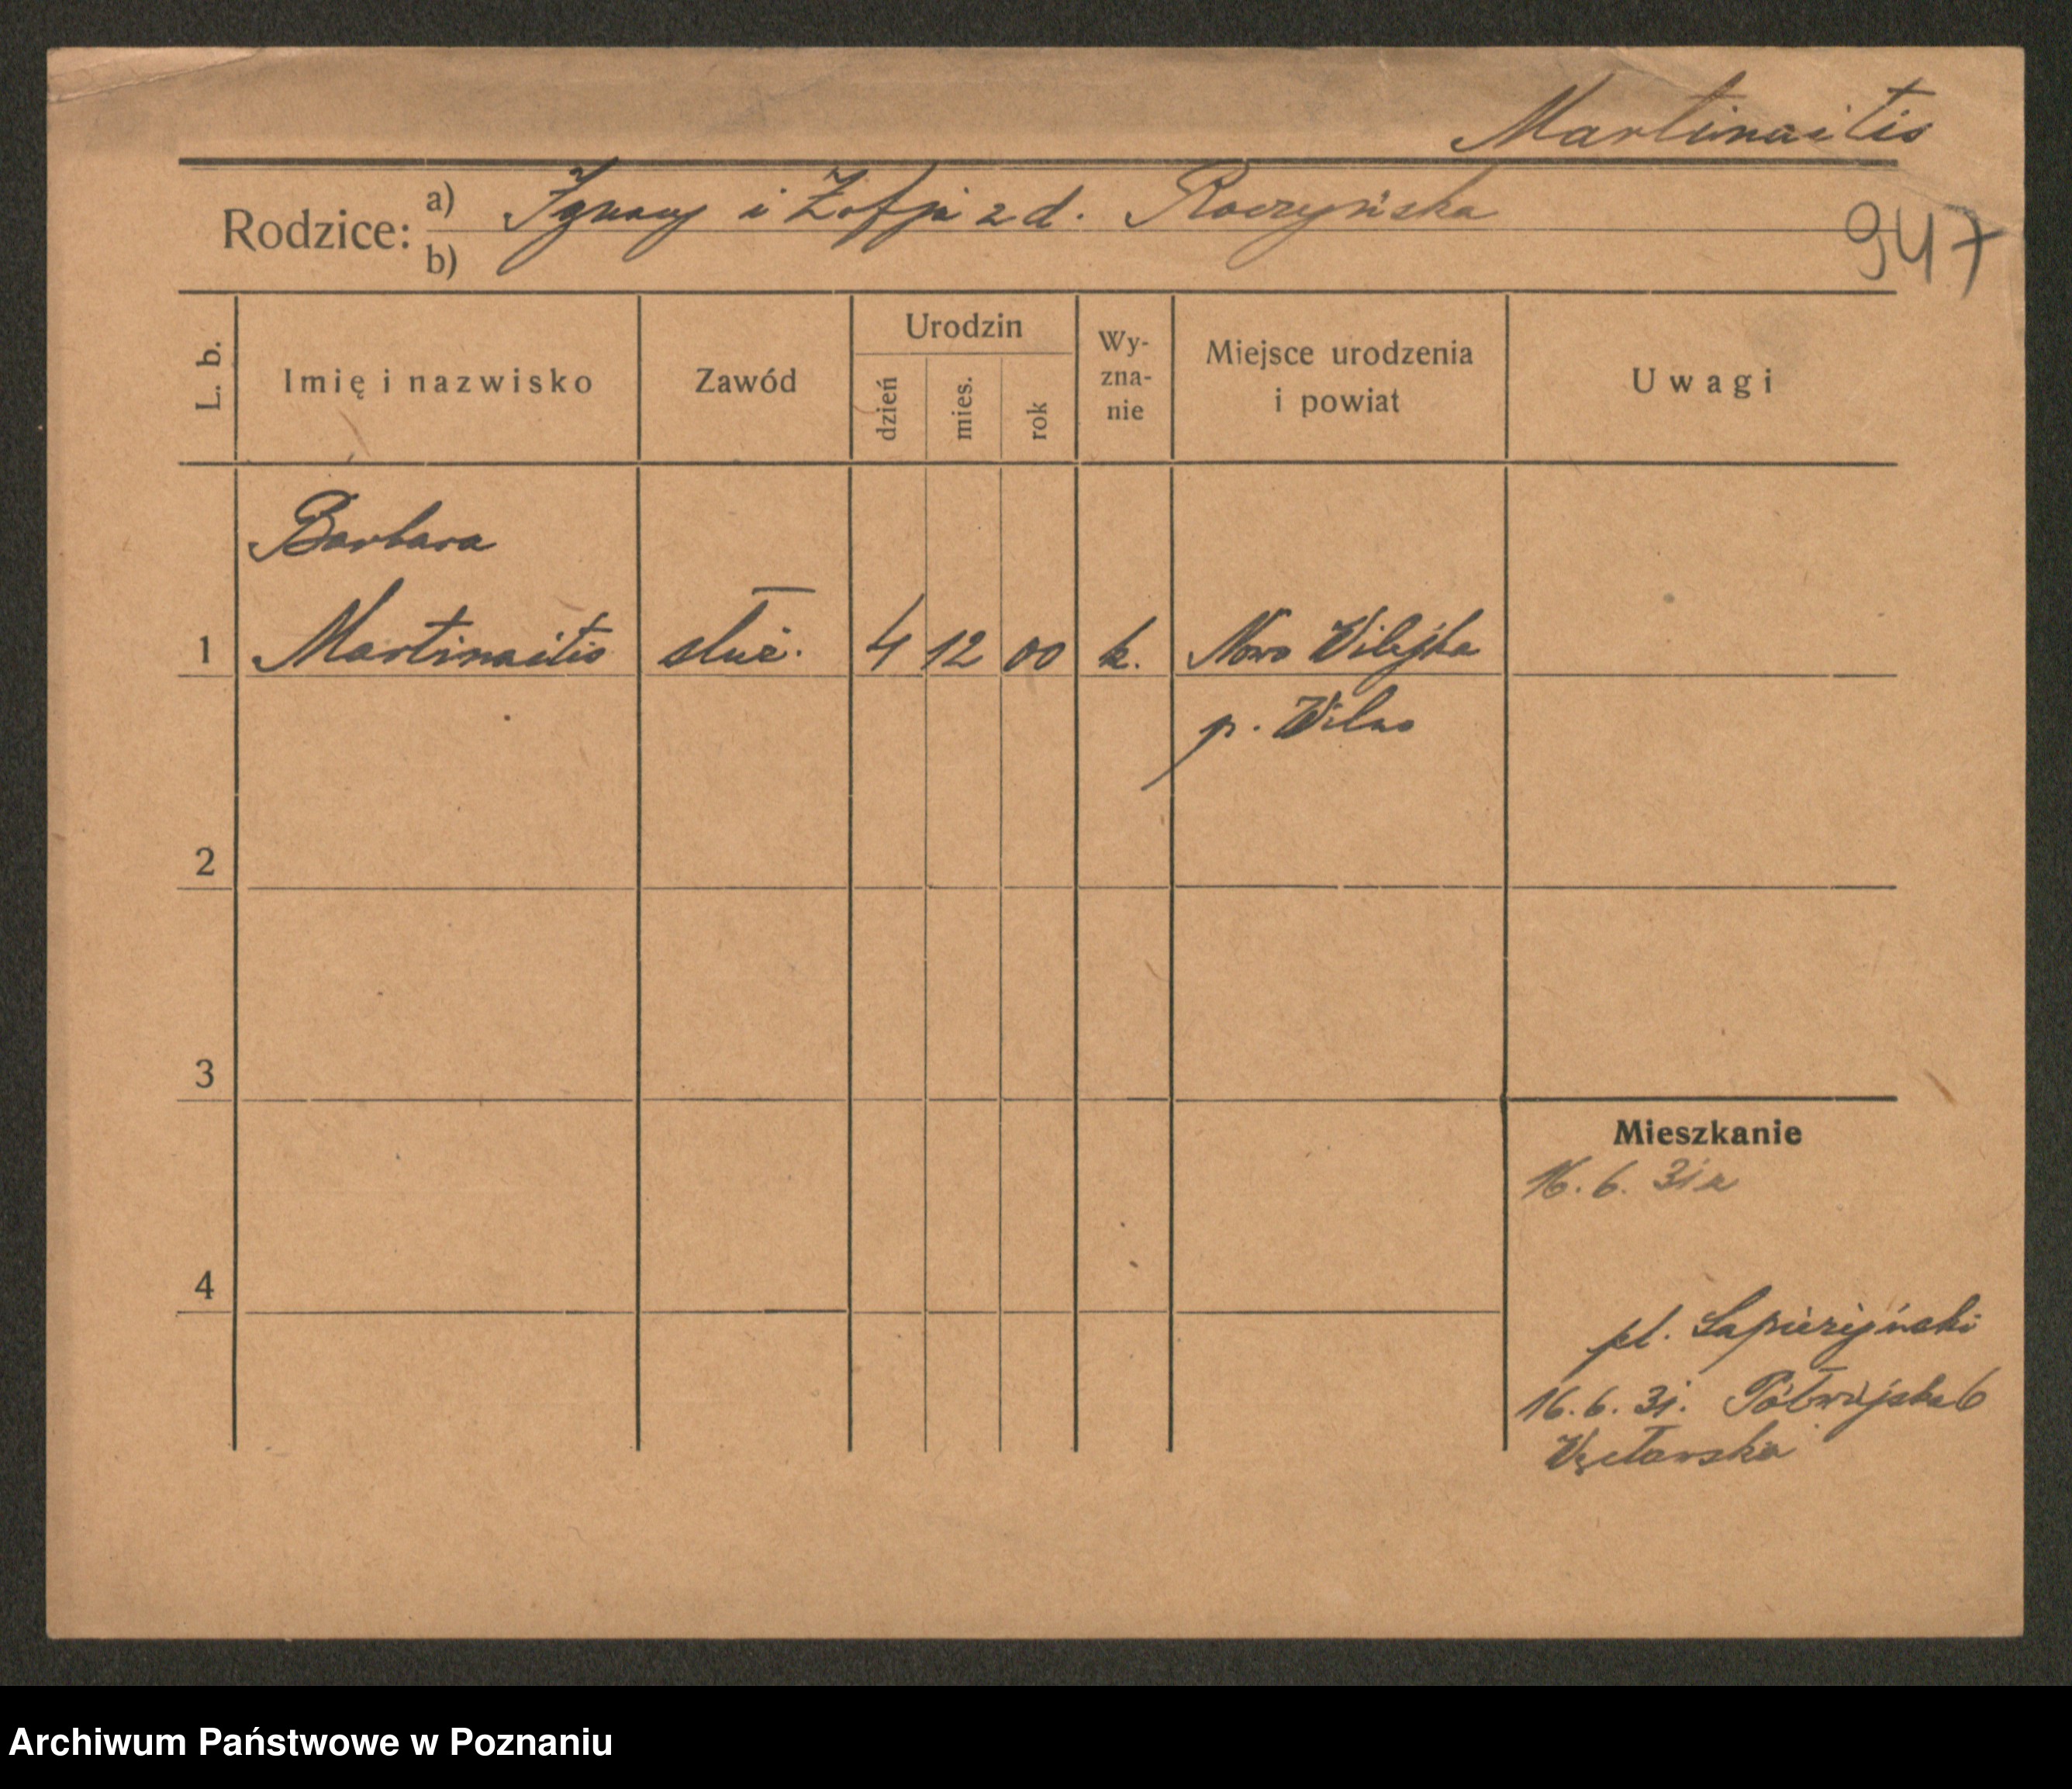 Martinaitis
Rodzice: a) Ignacy i Zofja z d. Raczyńska
b)
947
L. b.
Imię i nazwisko
Zawód
Urodzin
dzień
mies.
rok
Wy-
zna-
nie
Miejsce urodzenia
i powiat
Uwagi
Barbara
1 Martinaitis służ. 4 12 00 k. Nowo Wilejka
p. Wilno
2
3
Mieszkanie
16. 6. 31
4
pl. Sapieżyński
16. 6. 31. Półwiejska 6
Archiwum Państwowe w Poznaniu